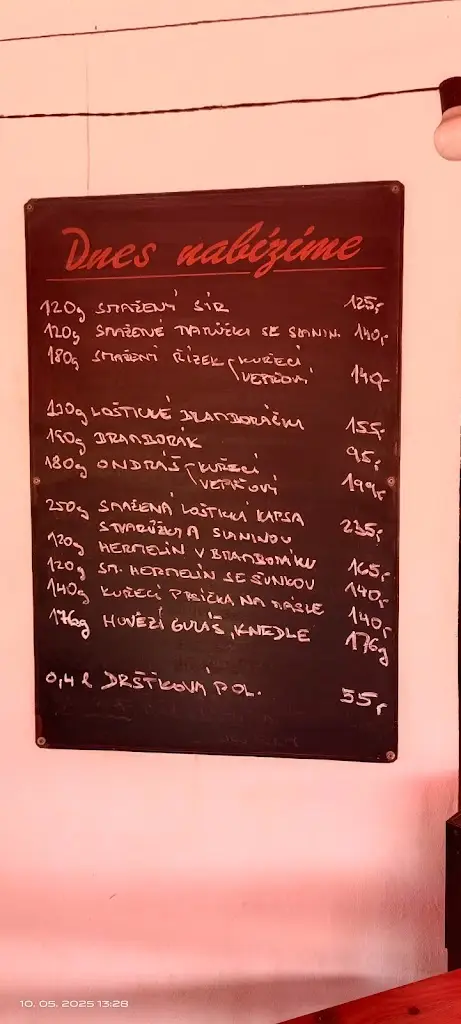 Dnes nabízíme
120g SMAŽENÝ SÍR 125,-
120g SMAŽENÉ TVARŮŽKY SE SLANIN. 140,-
180g SMAŽENÝ ŘÍZEK KUŘECÍ
VEPŘOVÝ 140,-
LOŠTICKÉ BRAMBORÁČKY 155,-
150g BRAMBORÁK 95,-
180g ONDRÁŠ KUŘECÍ
VEPŘOVÝ 199,-
250g SMAŽENÁ LOŠTICKÁ KAPSA
TVARŮŽKY A SLANINOU 235,-
120g HERMELÍN V BRAMBORÁKU 165,-
120g SM. HERMELÍN SE ŠUNKOU 140,-
140g KUŘECÍ PRSÍČKA NA MÁSLE 140,-
176g HOVĚZÍ GULÁŠ, KNEDLE 176g
0,4 l DRŠŤKOVÁ POL. 55,-
10. 05. 2025 13:28